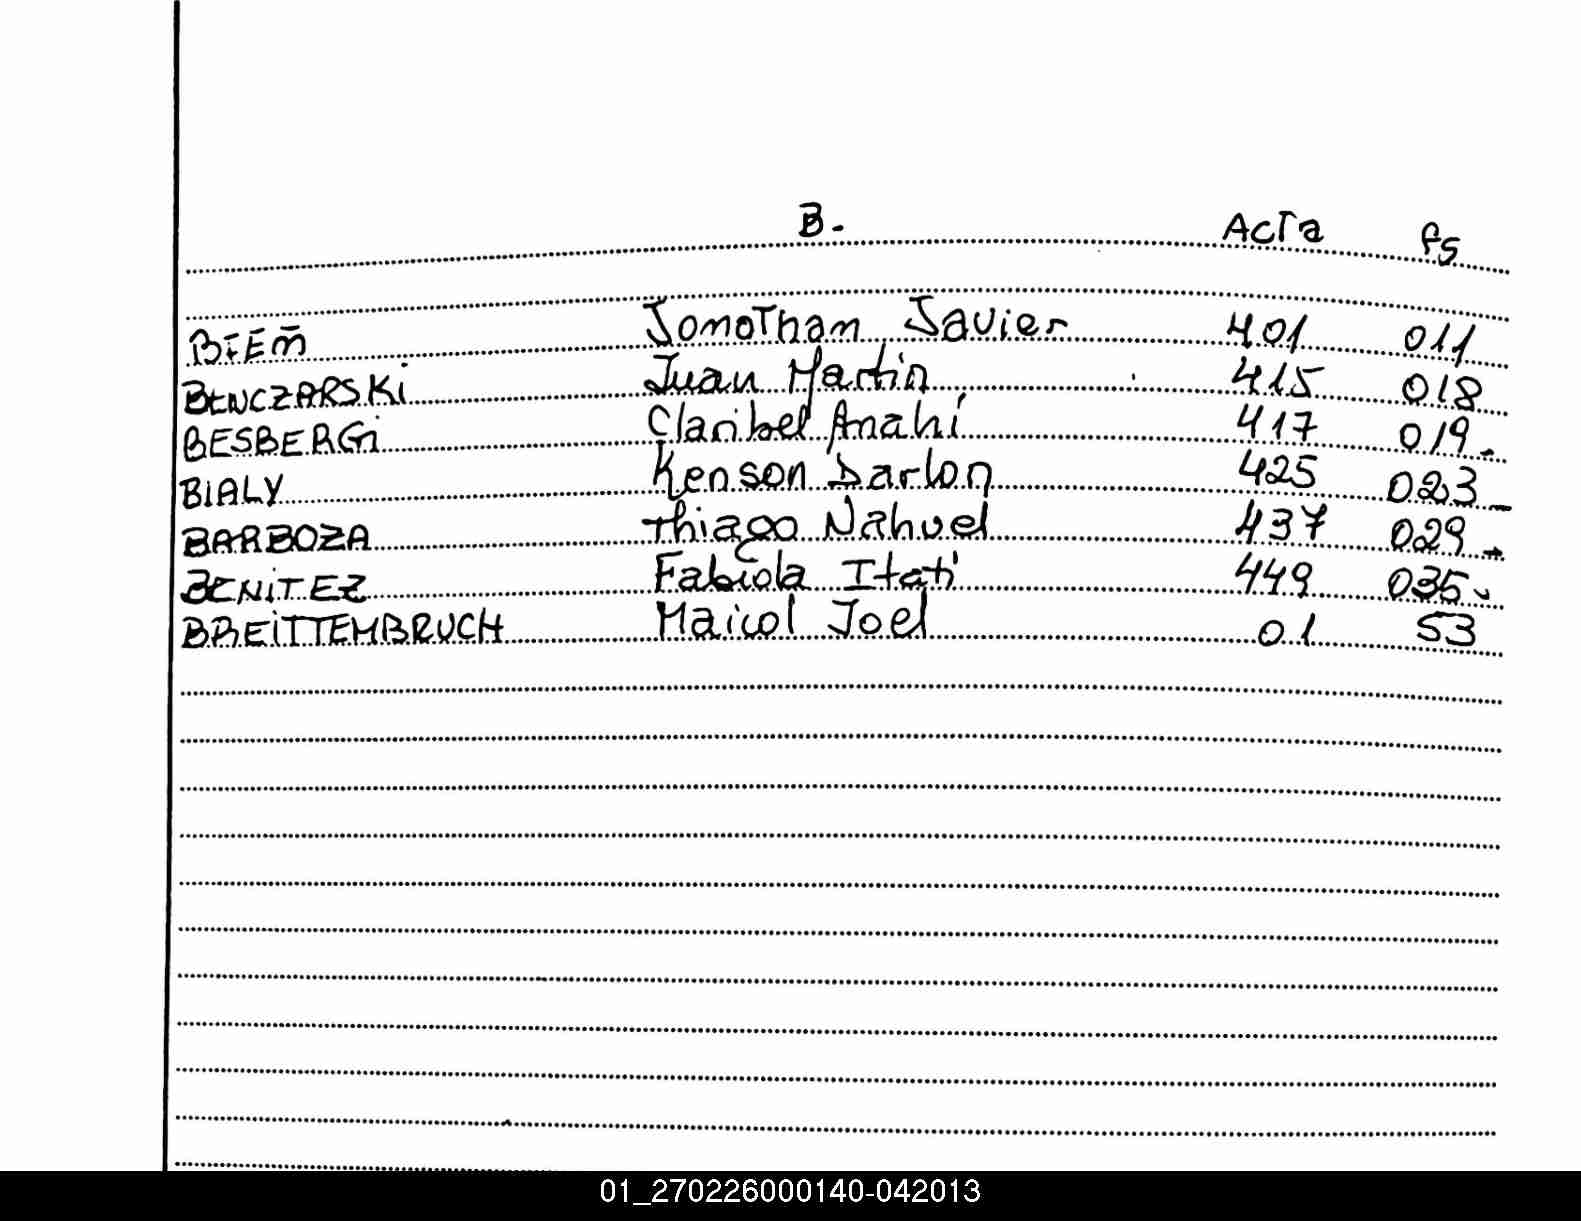 B. Acta fs
Jonothan Javier 401 011
BENCZARSKi Juan Martin 415 018
BESBERGi Claribel Anahí 417 019.
BIALY Kenson Darlon 425 023
BARBOZA Thiago Nahuel 437 029
BENiTEZ Fabiola Itatí 449 035
BREiTTEMBRUCH Maicol Joel 01 53
01_270226000140-042013